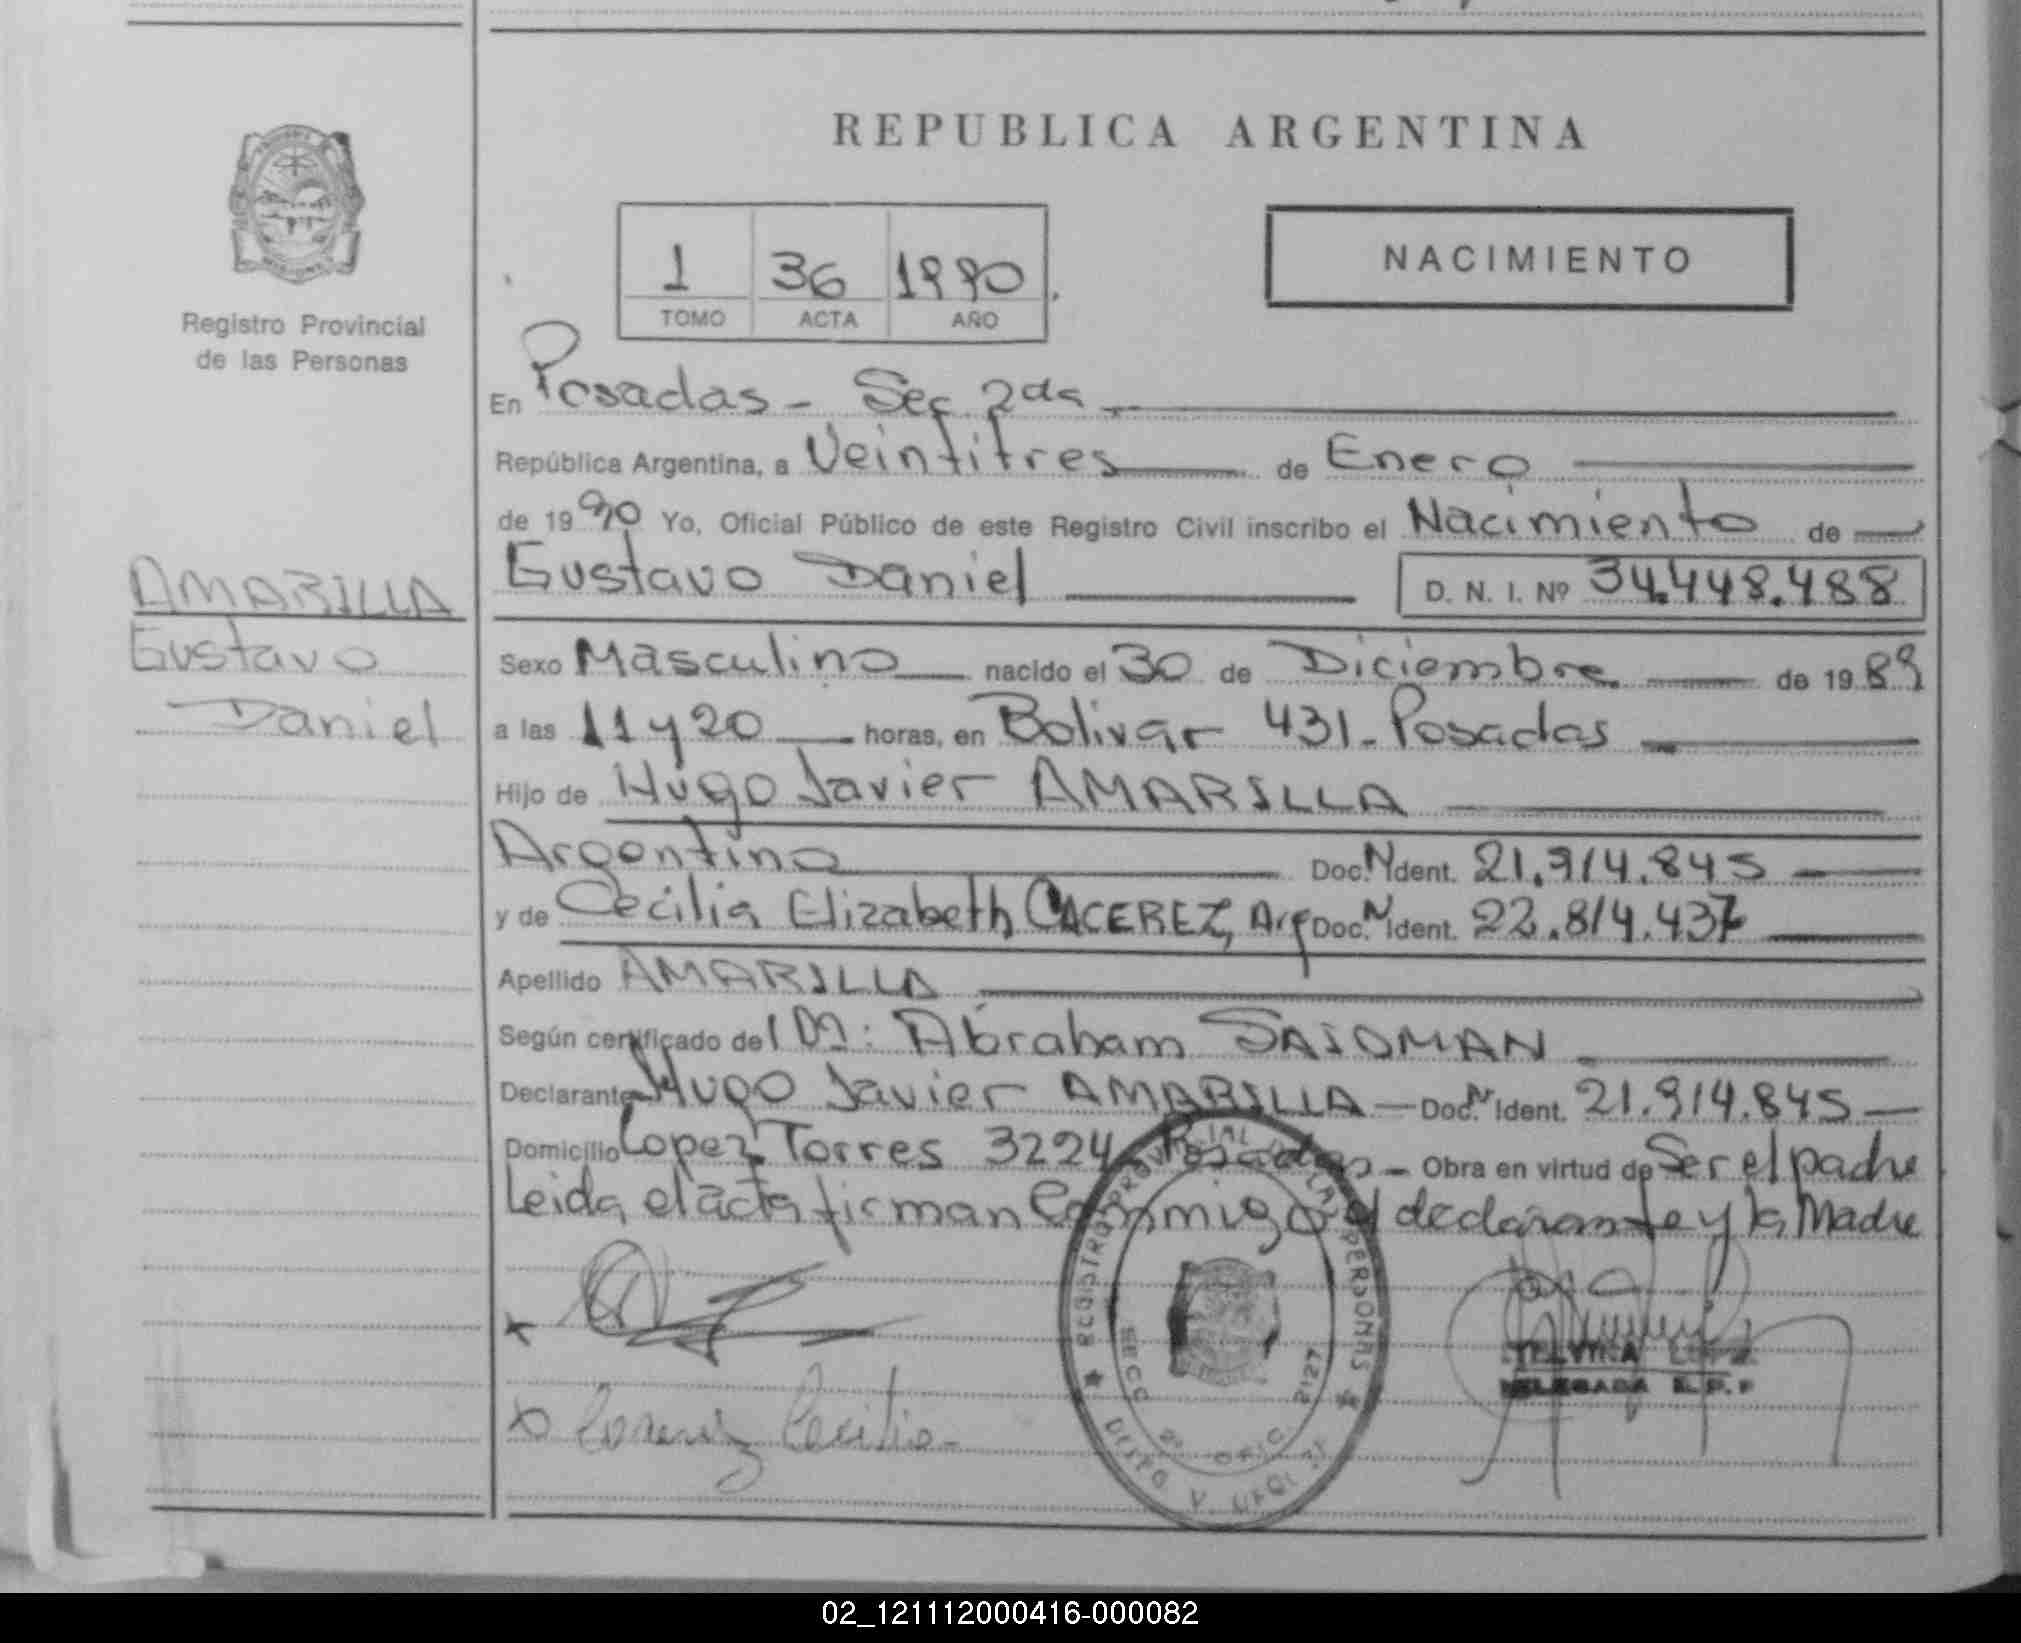 REPUBLICA ARGENTINA
Registro Provincial
de las Personas
1 36 1990
TOMO ACTA AÑO
NACIMIENTO
En Posadas - Sec 2da
República Argentina, a Veintitres de Enero
de 1990 Yo, Oficial Público de este Registro Civil inscribo el Nacimiento de
AMARILLA
Gustavo
Daniel
Gustavo Daniel D. N. I. Nº 34.448.488
Sexo Masculino nacido el 30 de Diciembre de 1989
a las 11 y 20 horas, en Bolivar 431 - Posadas
Hijo de Hugo Javier AMARILLA
Argentino Doc. N Ident. 21.914.845
y de Cecilia Elizabeth CACEREZ, Arg Doc. N Ident. 22.814.437
Apellido AMARILLA
Según certificado del Dr: Abraham SAIDMAN
Declarante Hugo Javier AMARILLA - Doc. N Ident. 21.914.845
Domicilio Lopez Torres 3224 Posadas - Obra en virtud de Ser el padre
Leida el acta firman Conmigo el declarante y la Madre
REGISTRO PROVINCIAL DE LAS PERSONAS
SECC 2º OFIC 2127
Cecilia
DELEGADA R.P.P
02_121112000416-000082